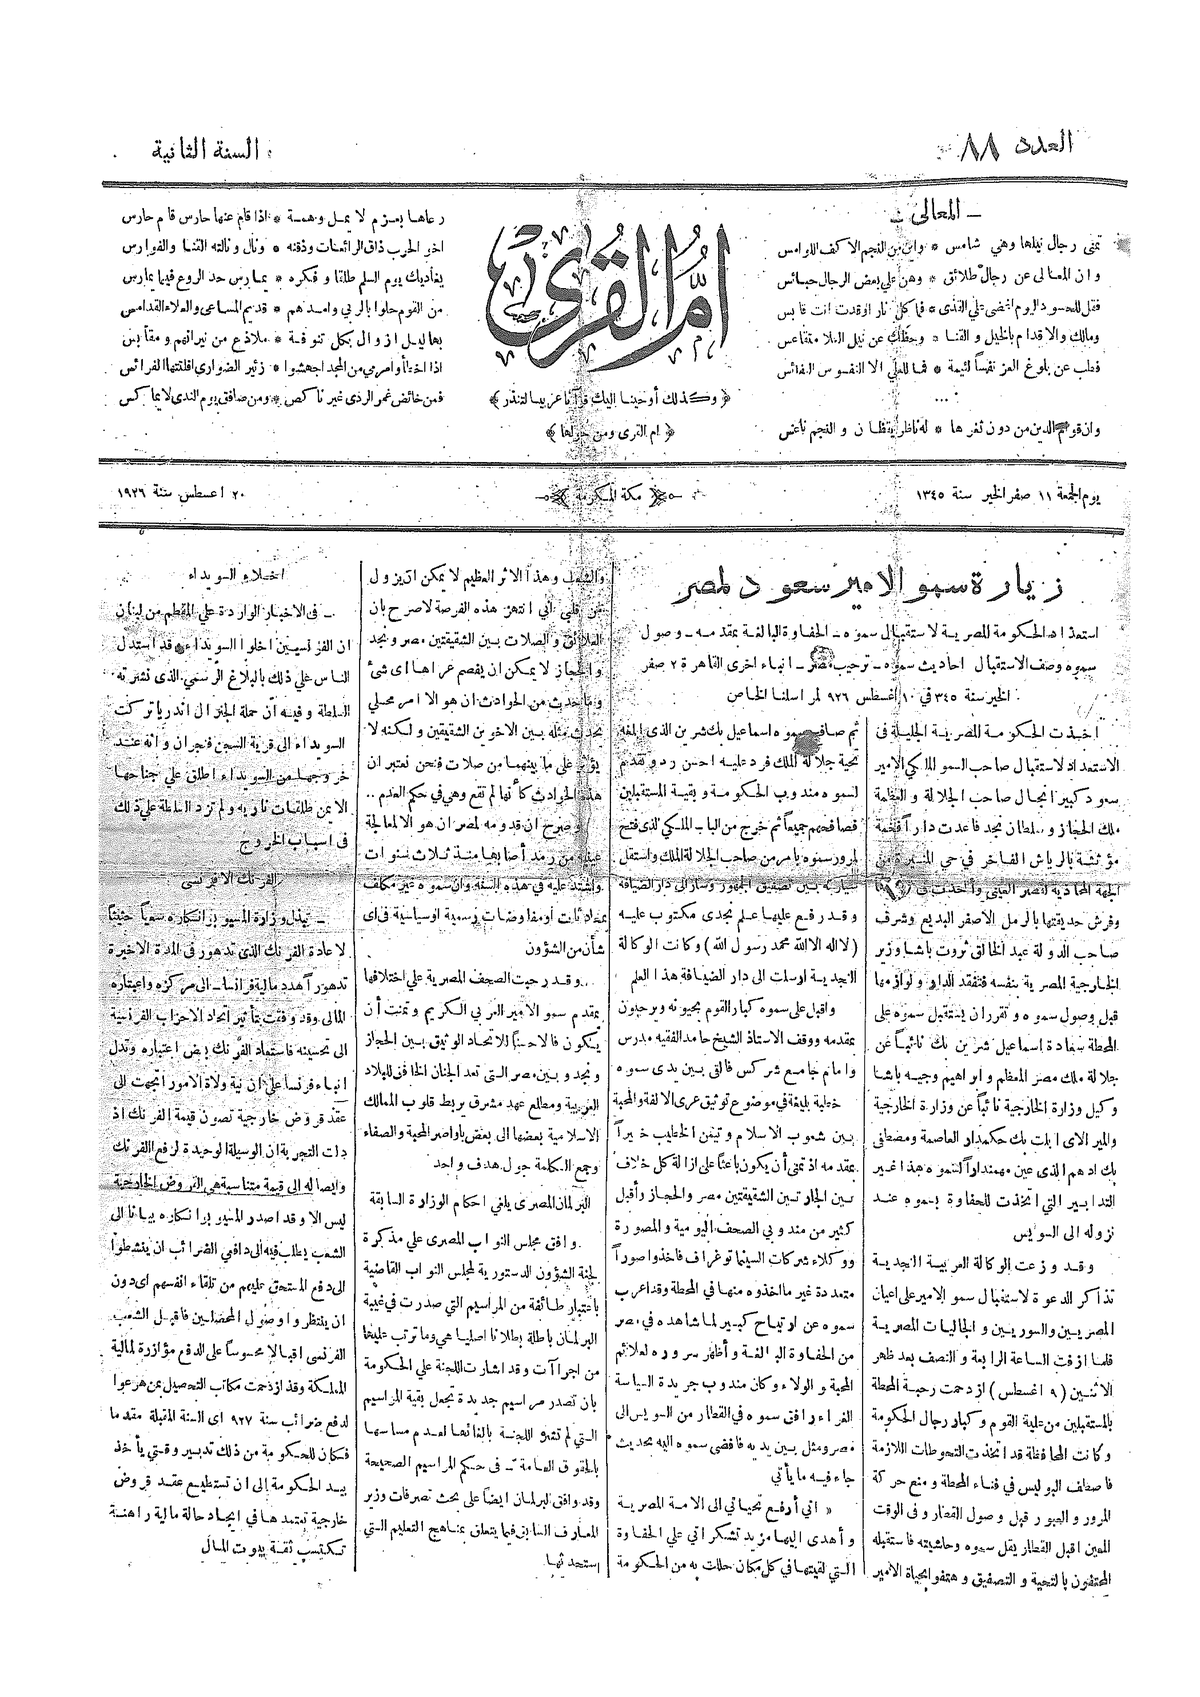 العدد ٨٨
السنة الثانية
ـ المعالى ـ
تمنى رجال نيلها وهي شامس * وابن من النجم الاكف اللوامس
وان المعالى عن رجال طلائق * وهن على بعض الرجال حبائس
فقل للحسود اليوم اغضى على القذى * فما كل نار اوقدت انت قابس
ومالك والاقدام بالخيل والقنا * وحظك عن نيل العلا متقاعس
فطب عن بلوغ العز نفساً لئيمة * فما للعلى الا النفوس النفائس
...
وان قوام الدين من دون ثغرها * له ناظر يقظان و النجم ناعس
ام القرى
﴿ وكذلك أوحينا اليك قرآنا عربيا لتنذر ﴾
﴿ ام القرى ومن حولها ﴾
رعاها بعزم لا يمل وهمة * اذا قام عنها حارس قام حارس
اخو الحرب ذاق الرائعات وذقنه * ونال ونالته القنا والفوارس
يغاديك يوم السلم طلقا و فكره * يمارس حد الروع فيما يمارس
من القوم حلوا بالربي وامدهم * قديم المساعى والعلاء القدامس
بهاليل ازوال بكل تنوفة * ملاذع من نيرانهم ومقابس
اذا اخطأوا مرمي من المجد اجهشوا * زئير الضوارى افلتتها الفرائس
فمن خائض غمر الردى غير ناكص * ومن صافق يوم الندى لايماكس
يوم الجمعة ١١ صفر الخير سنة ١٣٤٥
مكة المكرمة
٢٠ اغسطس سنة ١٩٢٦
زيارة سمو الامير سعود لمصر
استعداد الحكومة المصرية لاستقبال سموه ـ الحفاوة البالغة بمقدمه ـ وصول
سموه وصف الاستقبال احاديث سموه ـ ترحيب مصر ـ انباء اخرى القاهرة ٢ صفر
الخير سنة ٣٤٥ في ١٠ اغسطس ٩٢٦ لمراسلنا الخاص
اخذت الحكومة المصرية الجليلة فى
الاستعداد لاستقبال صاحب السمو الملكي الامير
سعود كبير انجال صاحب الجلالة والعظمة
ملك الحجاز وسلطان نجد فاعدت داراً فخمة
مؤثثة بالرياش الفاخر في حي المنيرة من
الجهة المحاذية لقصر العينى واخذت في
وفرش حديقتها بالرمل الاصفر البديع وشرف
صاحب الدولة عبد الخالق ثروت باشا وزير
الخارجية المصرية بنفسه فتفقد الدار ولوازمها
قبل وصول سموه وتقرر ان يستقبل سموه على
المحطة سعادة اسماعيل شرين بك نائباً عن
جلالة ملك مصر المعظم وابراهيم وجيه باشا
وكيل وزارة الخارجية نائباً عن وزارة الخارجية
والمير الاى ابلت بك حكمدار العاصمة ومصطفى
بك ادهم الذى عين مهمندار لسموه هذا غير
التدابير التي اتخذت للحفاوة بسموه عند
نزوله الى السويس
وقد وزعت الوكالة العربية النجدية
تذاكر الدعوة لاستقبال سمو الامير على اعيان
المصريين والسوريين والجاليات المصرية
فلما ازفت الساعة الرابعة و النصف بعد ظهر
الاثنين ( ٩ اغسطس ) ازدحمت رحبة المحطة
بالمستقبلين من علية القوم وكبار رجال الحكومة
وكانت المحافظة قد اتخذت التحوطات اللازمة
فاصطف البوليس في فناء المحطة ومنع حركة
المرور والعبور قبل وصول القطار وفى الوقت
المعين اقبل القطار يقل سموه وحاشيته فاستقبله
المحتفون بالتحية و التصفيق وهتفوا بحياة الامير
ثم صافح سموه اسماعيل بك شرين الذى ابلغه
تحية جلالة الملك فرد عليه احسن رد وتقدم
لسموه مندوب الحكومة وبقية المستقبلين
فصافحهم جميعاً ثم خرج من الباب الملكي الذى فتح
لمرور سموه بامر من صاحب الجلالة الملك واستقل
سيارته بين تصفيق الجمهور وسار الى دار الضيافة
وقد رفع عليها علم نجدى مكتوب عليه
(لا اله الا الله محمد رسول الله) وكانت الوكالة
النجدية ارسلت الى دار الضيافة هذا العلم
واقبل على سموه كبار القوم يحيونه ويرحبون
بمقدمه ووقف الاستاذ الشيخ حامد الفقيه مدرس
وامام جامع شركس فالقى بين يدى سموه
خطبة بليغة في موضوع توثيق عرى الالفة والمحبة
بين شعوب الاسلام وتيمن الخطيب خيراً
بمقدمه اذ تمنى أن يكون باعثاً على ازالة كل خلاف
بين الجارتين الشقيقتين مصر والحجاز وأقبل
كثير من مندوبي الصحف اليومية والمصورة
ووكلاء شركات السينما توغراف فاخذوا صوراً
متعددة غير ما اخذوه منها في المحطة وقد اعرب
سموه عن ارتياح كبير لما شاهده في مصر
من الحفاوة البالغة وأظهر سروره لعلائم
المحبة والولاء وكان مندوب جريدة السياسة
الغراء رافق سموه في القطار من السويس الى
مصر ومثل بين يديه فافضى سموه اليه بحديث
جاء فيه ما يأتي
« انى أرفع تحياتي الى الامة المصرية
وأهدى اليها مزيد تشكراتي على الحفاوة
التي لقيتها في كل مكان حللت به من الحكومة
والشعب وهذا الاثر العظيم لا يمكن ان يزول
من قلبى انى انتهز هذه الفرصة لاصرح بان
العلائق والصلات بين الشقيقتين مصر ونجد
والحجاز لا يمكن ان يفصم عراها اى شئ
وما حدث من الحوادث ان هو الا امر محلي
يحدث مثله بين الاخوين الشقيقين ولكنه لا
يؤثر على ما بينهما من صلات فنحن نعتبر ان
هذه الحوادث كأنها لم تقع وهي في حكم العدم ..
وصرح ان قدومه لمصر ان هو الا لمعالجة
عينيه من رمد أصابها منذ ثلاث سنوات
واشتد عليه في هذه السنة وان سموه غير مكلف
بمحادثات أو مفاوضات رسمية اوسياسية فى اى
شأن من الشؤون
.. وقد رحبت الصحف المصرية على اختلافها
بمقدم سمو الامير العربي الكريم وتمنت أن
يكون فالاحسناً للاتحاد الوثيق بين الحجاز
ونجد وبين مصر التى تعد الجنان الخافق للبلاد
العربية ومطلع عهد مشرق بربط قلوب الممالك
الاسلامية بعضها الى بعض باواصر المحبة والصفاء
وجمع الكلمة حول هدف واحد
البرلمان المصرى يلغي احكام الوزارة السابقة
وافق مجلس النواب المصرى على مذكرة
لجنة الشؤون الدستورية لمجلس النواب القاضية
باعتبار طائفة من المراسيم التي صدرت في غيبة
البرلمان باطلة بطلانا اصليا هي وما ترتب عليها
من اجراآت وقد اشارت اللجنة على الحكومة
بان تصدر مراسيم جديدة تجعل بقية المراسيم
التي لم تشر اللجنة بالغائها لعدم مساسها
بالحقوق العامة ـ فى حكم المراسيم الصحيحة
وقد وافق البرلمان ايضاً على بحث تصرفات وزير
المعارف السابق فيما يتعلق بمناهج التعليم التي
استحدثها.
اخلاء السويداء
ـ فى الاخبار الواردة على المقطم من لبنان
ان الفرنسيين اخلوا السويداء وقد استدل
الناس على ذلك بالبلاغ الرسمي الذى نشرته
السلطة وفيه ان حملة الجنرال اندريا تركت
السويداء الى قرية السجن فنجران وانه عند
خروجها من السويداء اطلق على جناحها
الايمن طلقات نارية ولم ترد السلطة على ذلك
فى اسباب الخروج
الفرنك الافرنسى
ـ تبذل وزارة المسيو بوانكاره سعياً حثيثاً
لاعادة الفرنك الذى تدهور في المدة الاخيرة
تدهوراً هدد مالية فرانسا ـ الى مركزه واعتباره
المالى وقد وفقت بتأثير اتحاد الاحزاب الفرنسية
الى تحسينه فاستعاد الفرنك بعض اعتباره وتدل
انباء فرنسا على ان نية ولاة الامور اتجهت الى
عقد قروض خارجية تصون قيمة الفرنك اذ
دلت التجربة ان الوسيلة الوحيدة لرفع الفرنك
وايصاله الى قيمة متناسبة هي القروض الخارجية
ليس الا وقد اصدر المسيو بوانكاره بيانا الى
الشعب يطلب فيه الى دافعي الضرائب ان ينشطوا
الى دفع المستحق عليهم من تلقاء انفسهم اى دون
ان ينتظروا وصول المحصلين فاقبل الشعب
الفرنسى اقبالا محسوساً على الدفع مؤازرة لمالية
المملكة وقد ازدحمت مكاتب التحصيل بمن هرعوا
لدفع ضرائب سنة ٩٢٧ اى السنة المقبلة مقدما
فكان للحكومة من ذلك تدبير وقتي يأخذ
بيد الحكومة إلى ان تستطيع عقد قروض
خارجية تعتمدها في ايجاد حالة مالية راهنة
تكتسب ثقة بيوت المال